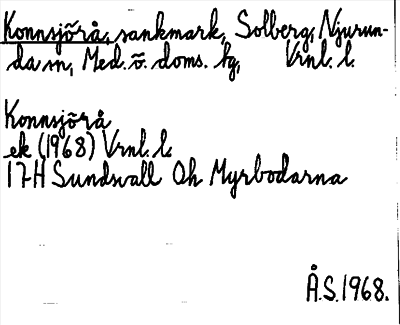 Konnsjõrå, sankmark, Solberg, Njurun-
da sn, Med. õ. doms. hg, Vrnl. l.
Konnsjõrå
ek (1968) Vrnl. l.
17H Sundsvall Oh Myrbodarna
Å.S. 1968.